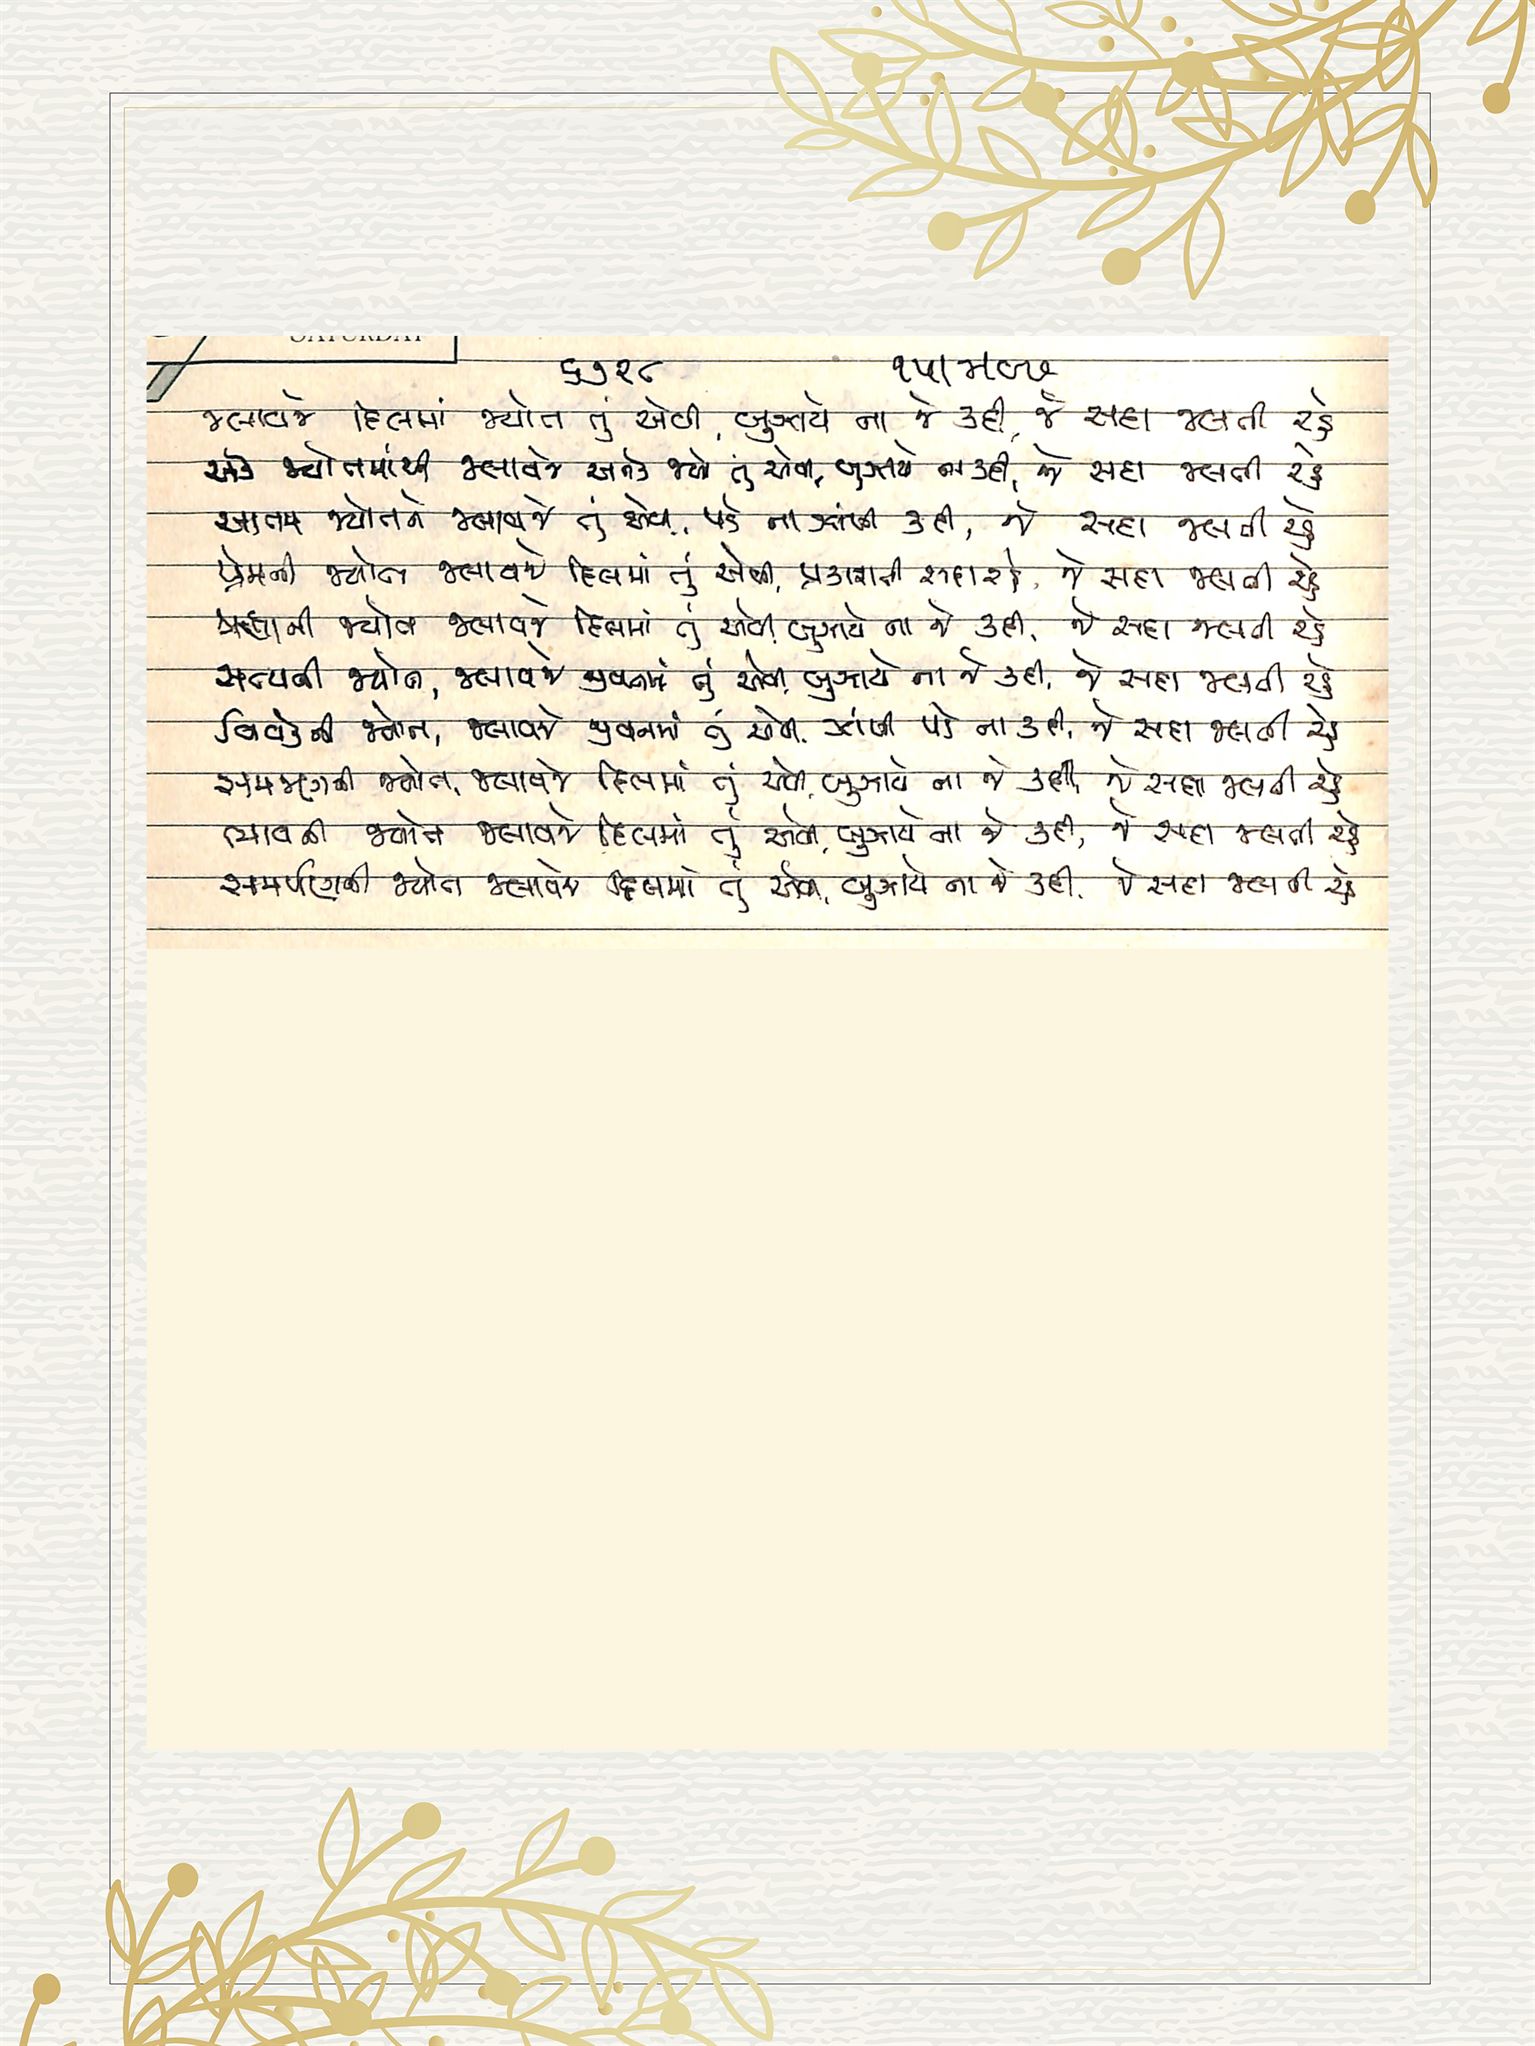 SATURDAY
૬૭૨૮
જલાવજે દિલમાં જ્યોત તું એવી, બુઝાયે ના જે કદી, જે સદા જલતી રહે
એક જ્યોતમાંથી જલાવજે અનેક જ્યોત તું એવી, બુઝાયે ના કદી, જે સદા જલતી રહે
આતમ જ્યોતને જલાવજે તું એવી, પડે ના ઝાંખી કદી, જે સદા જલતી રહે
પ્રેમની જ્યોત જલાવજે દિલમાં તું એવી, પ્રકાશતી સદા રહે, જે સદા જલતી રહે
શ્રદ્ધાની જ્યોત જલાવજે દિલમાં તું એવી, બુઝાયે ના જે કદી, જે સદા જલતી રહે
સત્યની જ્યોત, જલાવજે જીવનમાં તું એવી, બુઝાયે ના જે કદી, જે સદા જલતી રહે
વિવેકની જ્યોત, જલાવજે જીવનમાં તું એવી, ઝાંખી પડે ના કદી, જે સદા જલતી રહે
સમજણની જ્યોત, જલાવજે દિલમાં તું એવી, બુઝાયે ના જે કદી, જે સદા જલતી રહે
ત્યાગની જ્યોત જલાવજે દિલમાં તું એવી, બુઝાયે ના જે કદી, જે સદા જલતી રહે
સમર્પણની જ્યોત જલાવજે દિલમાં તું એવી, બુઝાયે ના જે કદી, જે સદા જલતી રહે